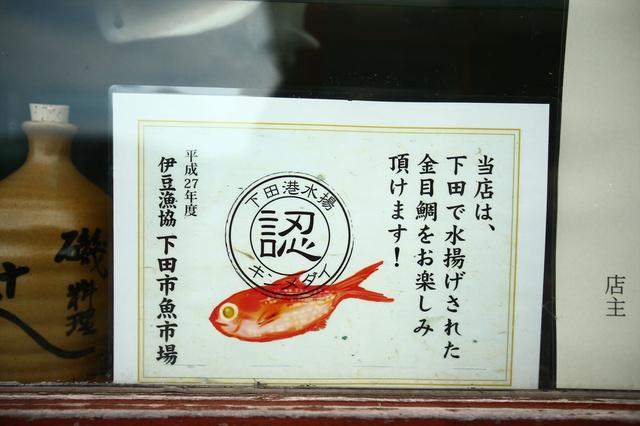 当店は、
下田で水揚げされた
金目鯛をお楽しみ
頂けます！
下田港水揚
認
キンメダイ
平成27年度
伊豆漁協 下田市魚市場
磯料理
店主